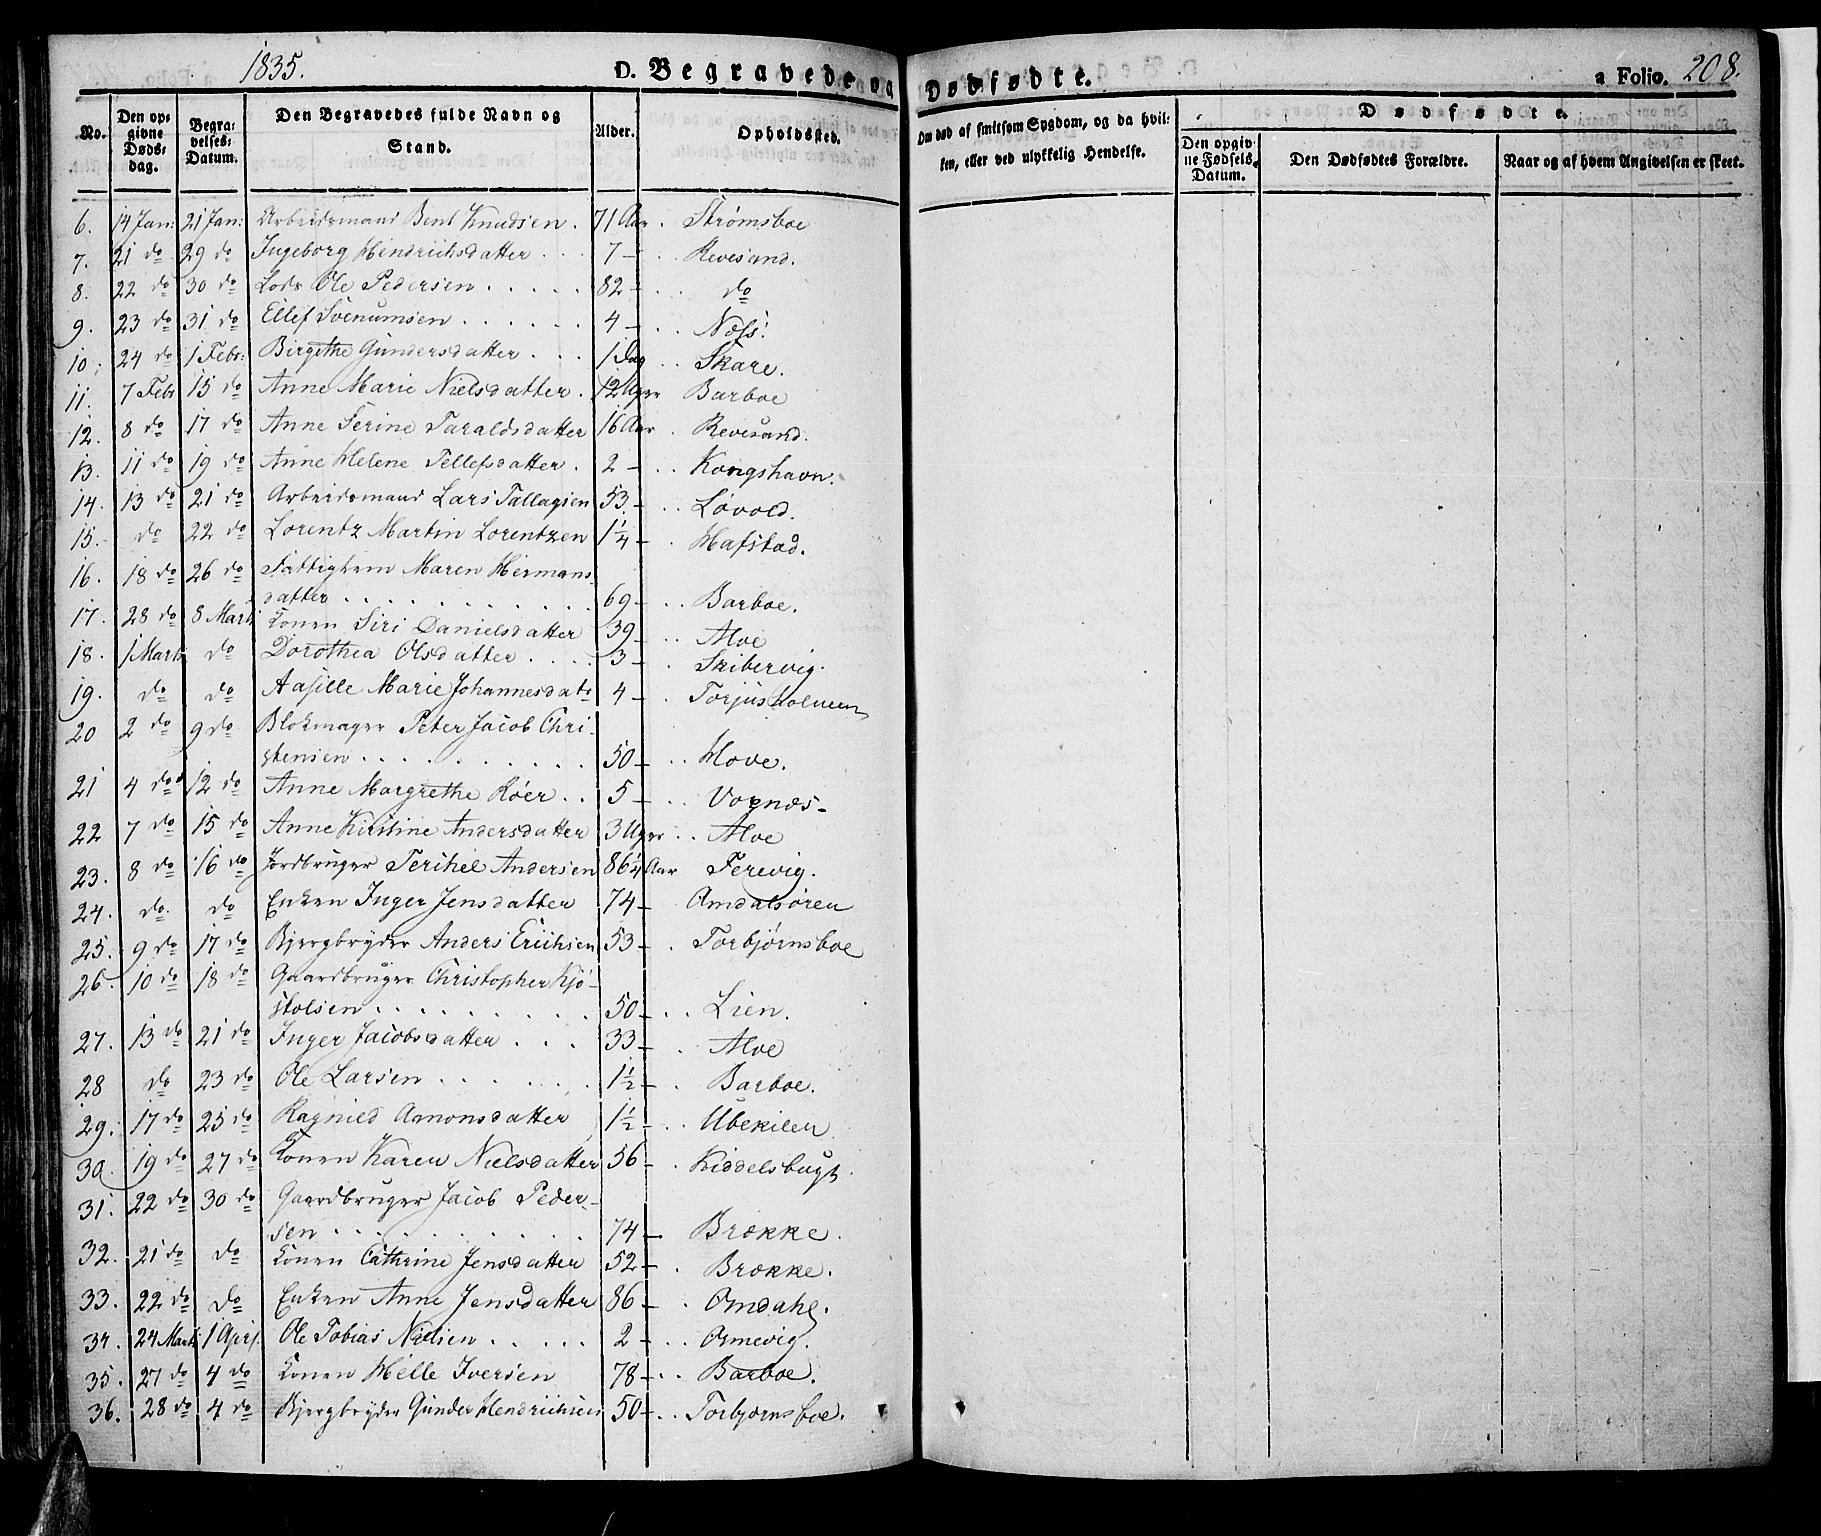 1835. D. Begravede og Dødfødte. a Folio. 208.
No. Den opgivne Dødsdag. Begravelses-Datum. Den Begravedes fulde Navn og Stand. Alder. Opholdssted. Om død af smitsom Sygdom, og da hvilken, eller ved ulykkelig Hendelse. Dødfødte. Den opgivne Fødsels Datum. Den Dødfødtes Forældre. Naar og af hvem Angivelsen er skeet.
6. 14 Jan: 21 Jan: Arbeidsmand Bent Knudsen . 71 Aar . Strømsboe
7. 21 do 29 do Ingeborg Hendrichsdatter . . . 7 - . . Revesand.
8. 22 do 30 do Lods Ole Pedersen . . . . . 82 - . . do
9. 23 do 31 do Ellef Svenumsen . . . . . . 4 - . . Næss.
10. 24 do 1 Febr: Birgithe Gundersdatter . . . 1 Dag . . Skare.
11. 7 Febr 15 do Anne Marie Nielsdatter . 12 Uger Barboe
12. 8 do 17 do Anne Serine Taraldsdatter 16 Aar . Revesand.
13. 11 do 19 do Anne Helene Tellefsdatter . 2 - . . Kongshavn.
14. 13 do 21 do Arbeidsmand Lars Tallagsen 53. - . Løvold.
15. do 22 do Lorentz Martin Lorentzen 1 1/4 - . Hafstad.
16. 18 do 26 do Fattiglem Maren Hermans-
datter . . . . . . . . . . . 69 - . . Barboe.
17. 28 do 8 Marts Konen Siri Danielsdatter 39 - . . Alve
18. 1 Marts do Dorothea Olsdatter . . . . 3 - . Skibervig.
19. do do Aasille Marie Johannesdatr 4 - . Torjusholmen
20 2 do 9 do Blokmager Peter Jacob Chri-
stensen . . . . . . . . . . 50 - . . Hove.
21 4 do 12 do Anne Margrethe Røer . . 5 - . . Vognæs -
22 7 do 15 do Anne Kirstine Andersdatter 3 Uger . . Alve
23. 8 do 16 do Jordbruger Terikel Andersen 86 1/4 Aar Ferevig.
24. do do Enken Inger Jensdatter 74 - Omdalsøren
25. 9 do 17 do Bjergbryder Anders Erichsen 53 - . Torbjørnsboe
26. 10 do 18 do Gaardbruger Christopher Kjø-
stolsen . . . . . . . . . 50 - . . Lien.
27. 13 do 21 do Inger Jacobsdatter . . . 33 - . Alve
28 do 23 do Ole Larsen . . . . . . 1 1/2 - . . Barboe.
29. 17 do 25 do Ragnild Amonsdatter 1 1/2 - . . Ubekilen
30. 19 do 27 do Konen Karen Nielsdatter 56 - . Kiddelsbugt.
31. 22 do 30 do Gaardbruger Jacob Peder-
sen . . . . . . . . . . 74 - Brøkke.
32. 21 do do Konen Cathrine Jensdatter 52 - . Brøkke.
33. 22 do do Enken Anne Jensdatter 86 - . Omdahl.
34. 24 Marts 1 April. Ole Tobias Nielsen . . . . . 2 - . . Omevig.
35. 27 do 4 do Konen Helle Iversen 78 - . . Barboe.
36. 28 do 4 do Bjergbryder Gunder Hendrichsen 50 - . . Torbjørnsboe.